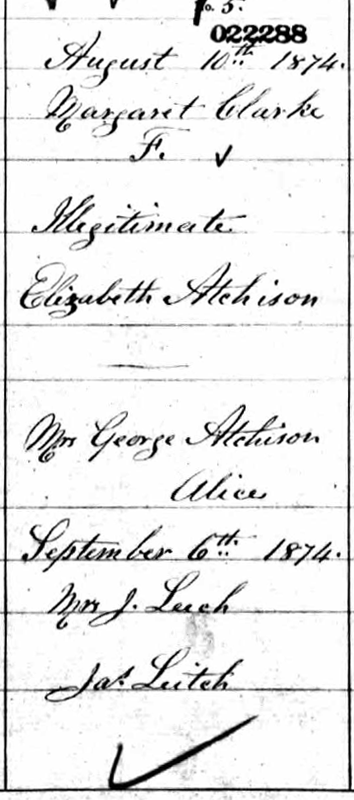 p. 5.
022288
August 10th 1874.
Margaret Clarke
F.
Illegitimate
Elizabeth Atchison
Mrs George Atchison
Alice
September 6th 1874.
Mrs J. Leech
Jas Leitch